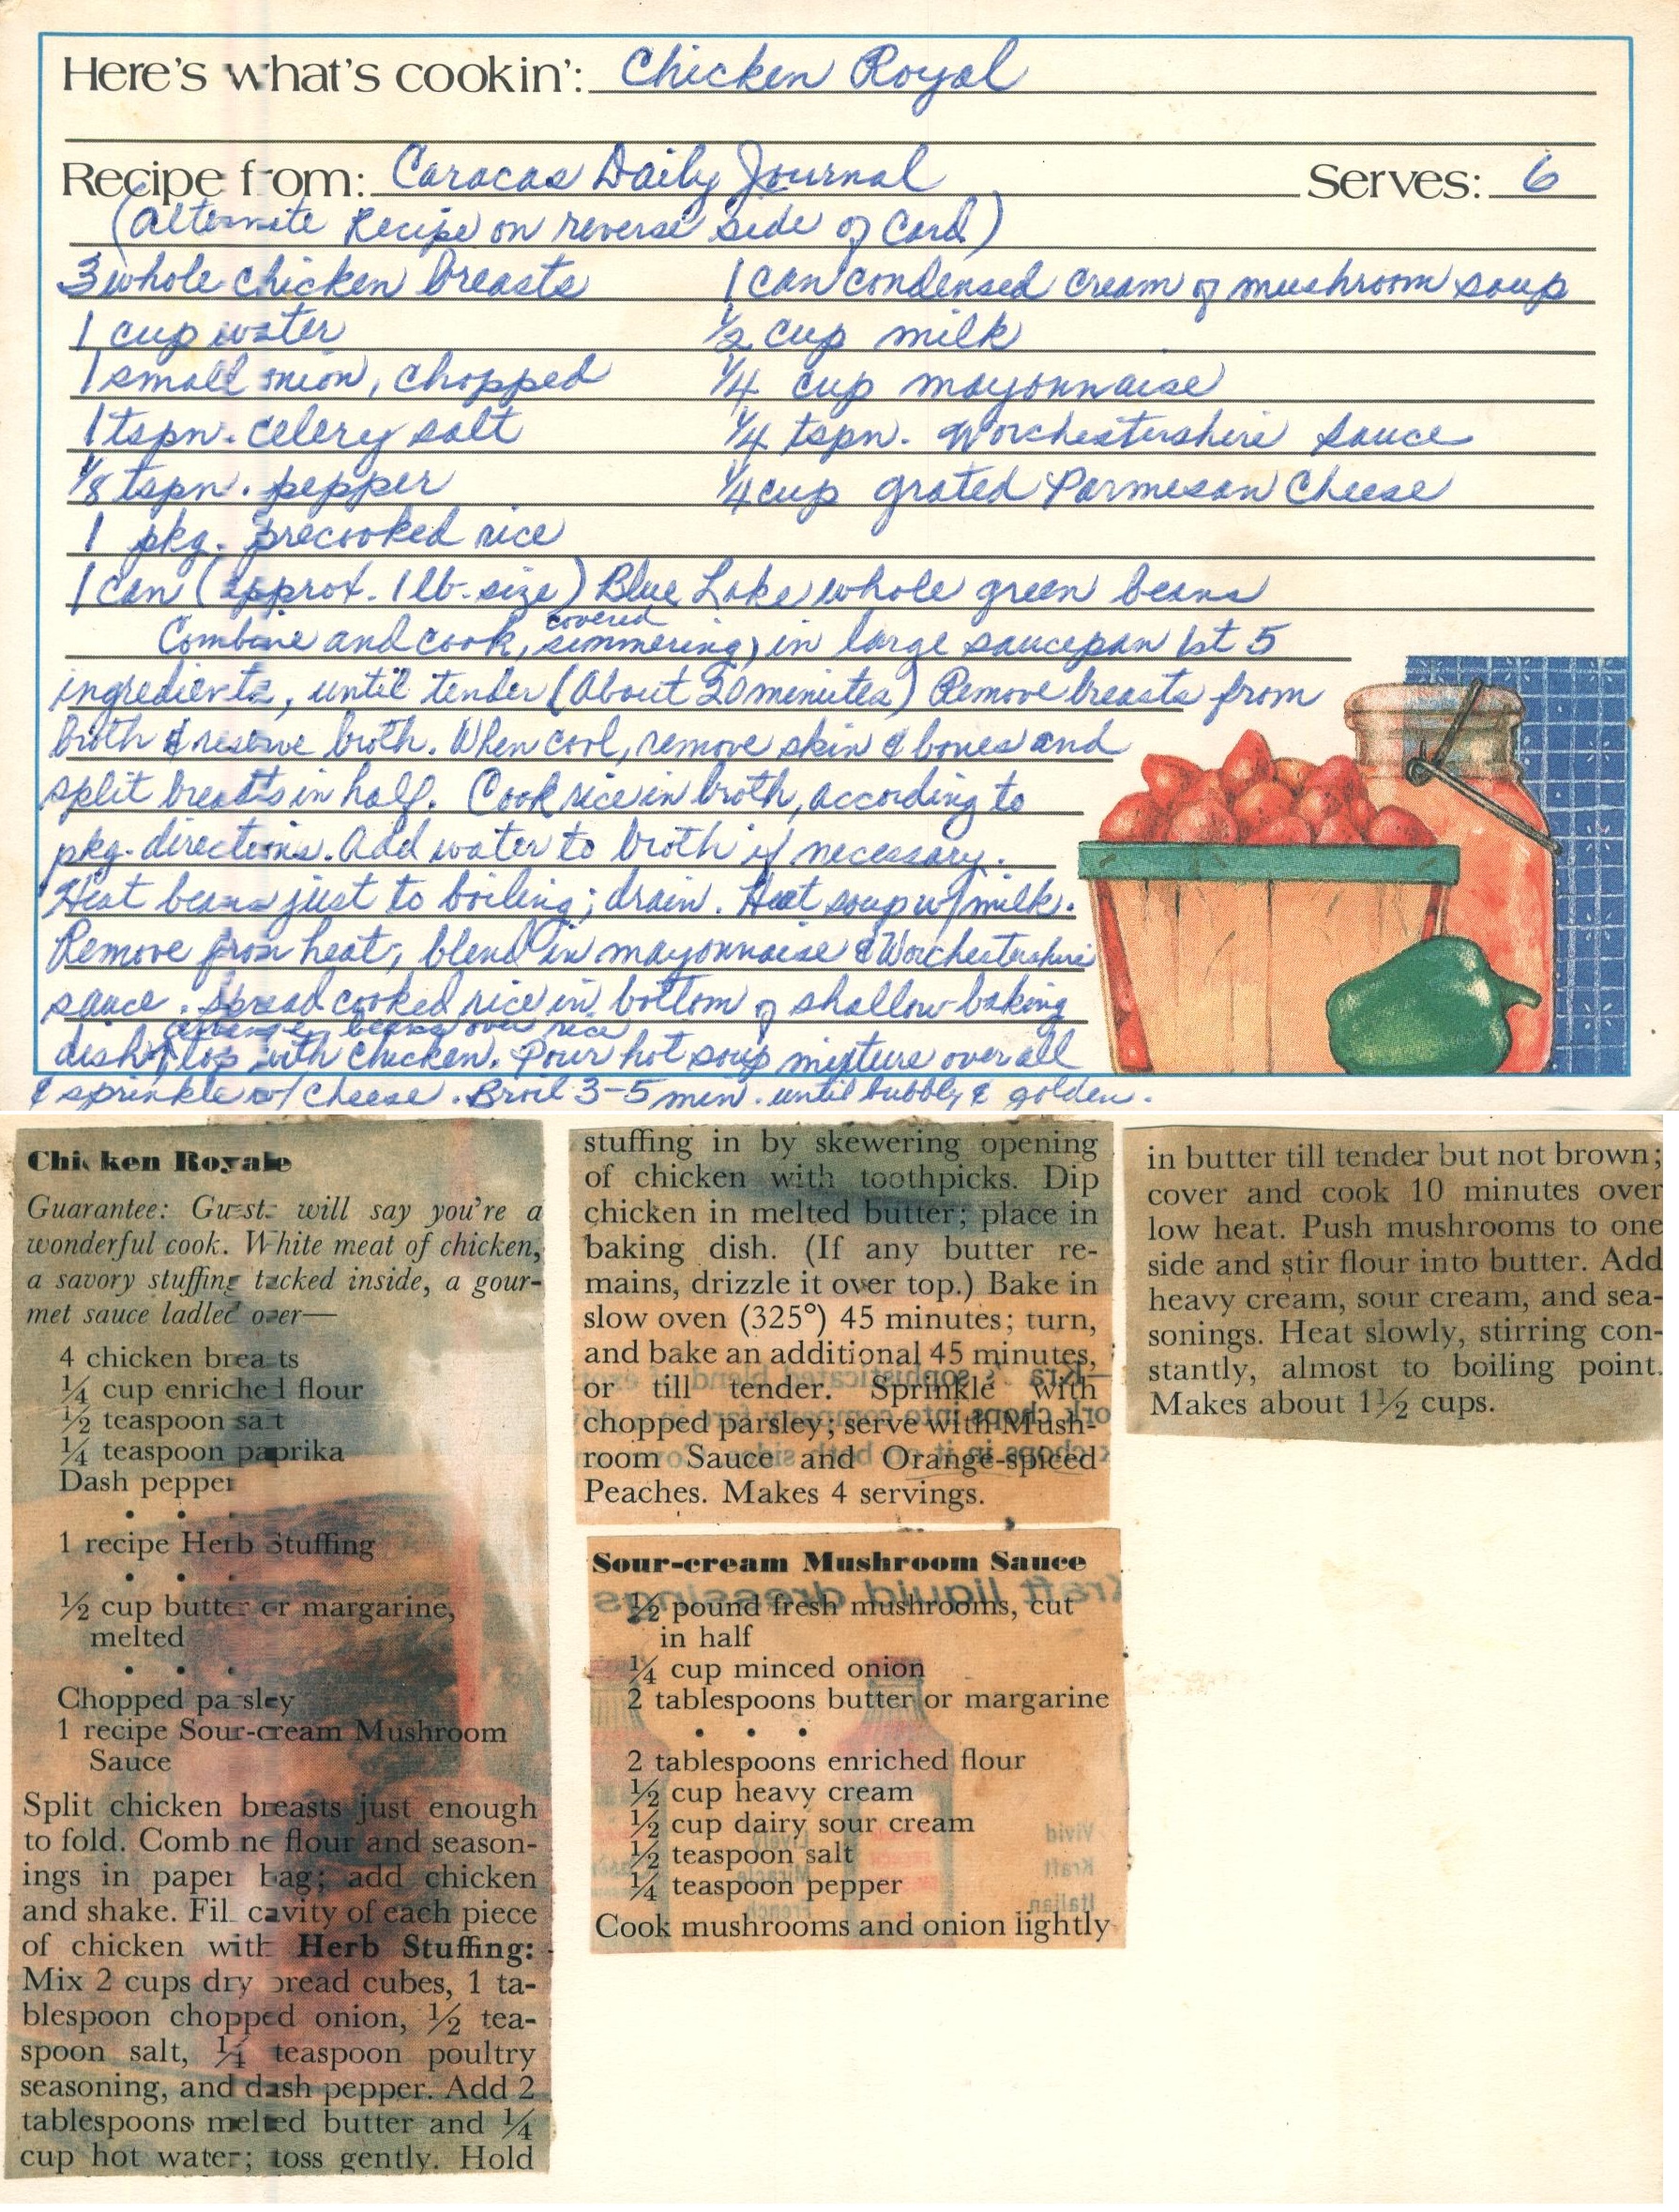 Here's what's cookin': Chicken Royal
Recipe from: Caracas Daily Journal Serves: 6
(Alternate Recipe on reverse side of Card)
3 whole chicken breasts 1 can condensed cream of mushroom soup
1 cup water 1/2 cup milk
1 small onion, chopped 1/4 cup mayonnaise
1 tspn. celery salt 1/4 tspn. Worchestershire Sauce
1/8 tspn. pepper 1/4 cup grated Parmesan Cheese
1 pkg. precooked rice
1 can (approx. 1 lb. size) Blue Lake whole green beans
Combine and cook, covered simmering, in large saucepan 1st 5
ingredients, until tender (About 20 minutes) Remove breasts from
broth & reserve broth. When cool, remove skin & bones and
split breasts in half. Cook rice in broth, according to
pkg. directions. Add water to broth if necessary.
Heat beans just to boiling; drain. Heat soup w/ milk.
Remove from heat, blend in mayonnaise & Worchestershire
sauce. Spread cooked rice in bottom of shallow baking
arrange beans over rice
dish, top with chicken. Pour hot soup mixture over all
& sprinkle w/ cheese. Broil 3-5 min. until bubbly & golden.
Chicken Royale
Guarantee: Guests will say you're a
wonderful cook. White meat of chicken,
a savory stuffing tucked inside, a gour-
met sauce ladled over—
4 chicken breasts
¼ cup enriched flour
½ teaspoon salt
¼ teaspoon paprika
Dash pepper
• • •
1 recipe Herb Stuffing
• • •
½ cup butter or margarine,
melted
• • •
Chopped parsley
1 recipe Sour-cream Mushroom
Sauce
Split chicken breasts just enough
to fold. Combine flour and season-
ings in paper bag; add chicken
and shake. Fill cavity of each piece
of chicken with Herb Stuffing:
Mix 2 cups dry bread cubes, 1 ta-
blespoon chopped onion, ½ tea-
spoon salt, ¼ teaspoon poultry
seasoning, and dash pepper. Add 2
tablespoons melted butter and ¼
cup hot water; toss gently. Hold
stuffing in by skewering opening
of chicken with toothpicks. Dip
chicken in melted butter; place in
baking dish. (If any butter re-
mains, drizzle it over top.) Bake in
slow oven (325°) 45 minutes; turn,
and bake an additional 45 minutes,
or till tender. Sprinkle with
chopped parsley; serve with Mush-
room Sauce and Orange-spiced
Peaches. Makes 4 servings.
Sour-cream Mushroom Sauce
½ pound fresh mushrooms, cut
in half
¼ cup minced onion
2 tablespoons butter or margarine
• • •
2 tablespoons enriched flour
½ cup heavy cream
½ cup dairy sour cream
½ teaspoon salt
¼ teaspoon pepper
Cook mushrooms and onion lightly
in butter till tender but not brown;
cover and cook 10 minutes over
low heat. Push mushrooms to one
side and stir flour into butter. Add
heavy cream, sour cream, and sea-
sonings. Heat slowly, stirring con-
stantly, almost to boiling point.
Makes about 1½ cups.